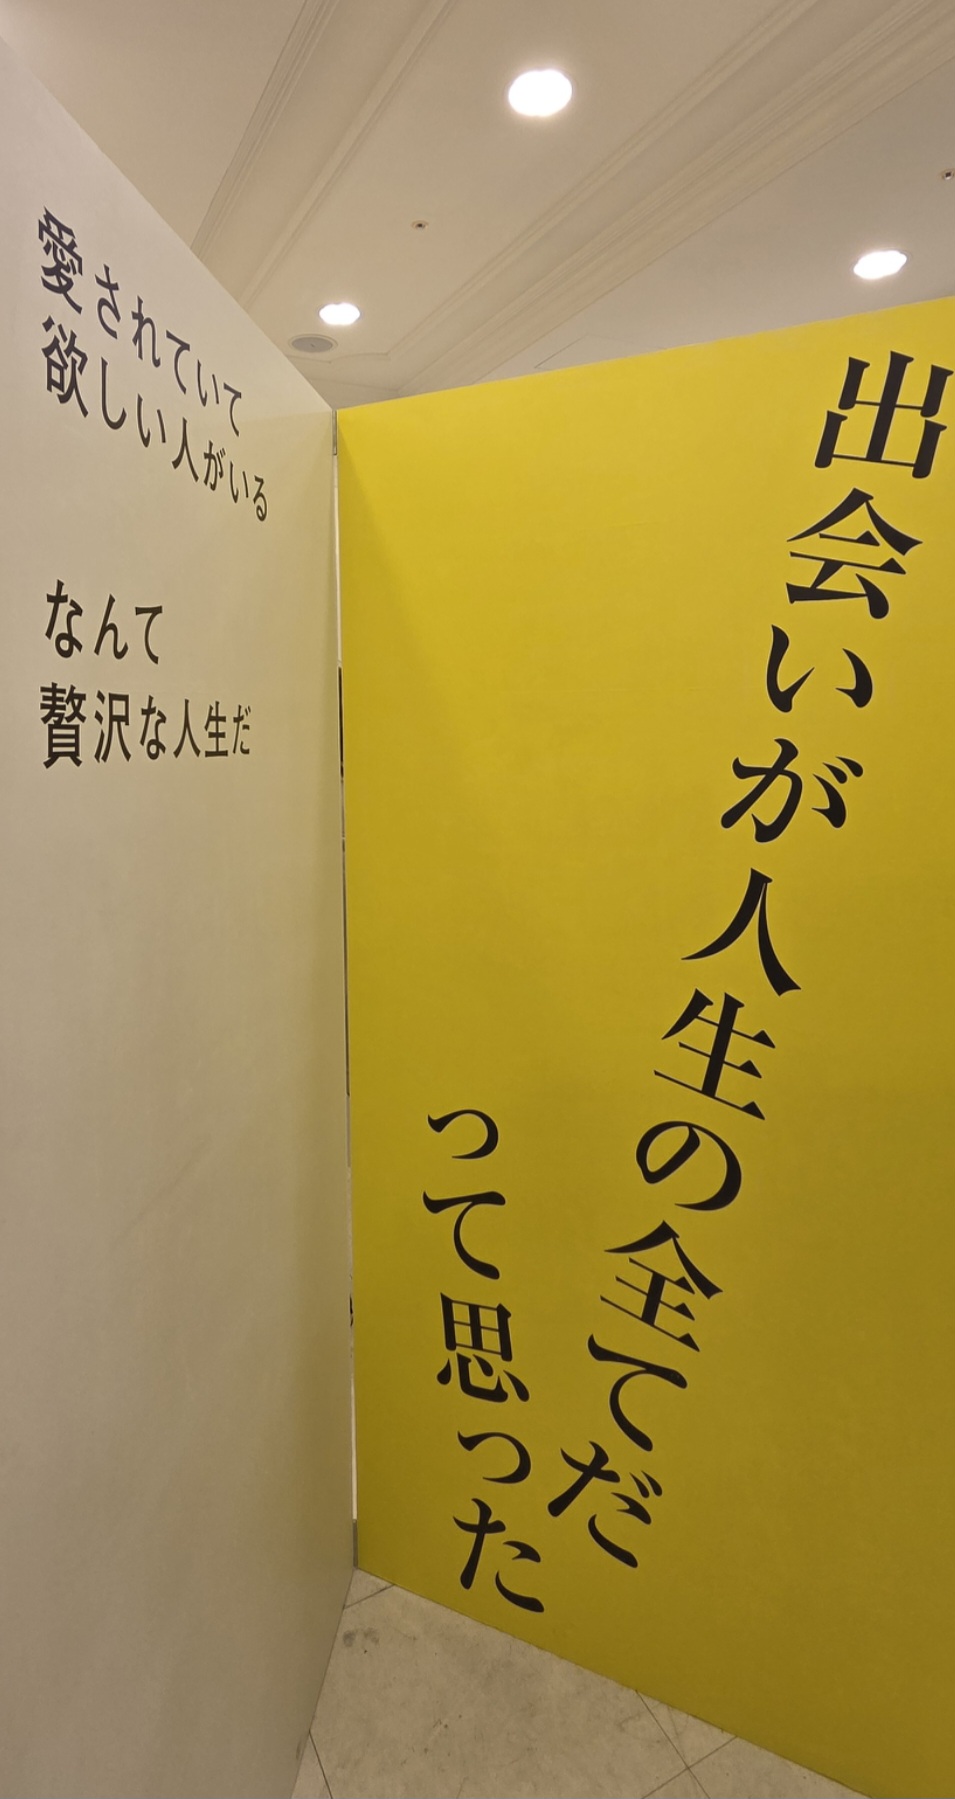 愛されていて
欲しい人がいる
なんて
贅沢な人生だ
出会いが人生の全てだ
って思った